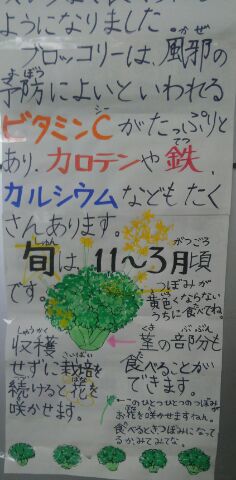 ようになりました
ブロッコリーは、風邪の
予防によいといわれる
ビタミンCがたっぷりと
あり、カロテンや鉄、
カルシウムなどもたく
さんあります。
旬は、11〜3月頃
です。
つぼみが
黄色くならない
うちに食べてね。
収穫
せずに栽培を
続けると花を
咲かせます。
茎の部分も
食べることが
できます。
このひとつひとつのつぼみが
お花を咲かせますねん。
食べるときつぼみになって
るか、みてみてな。